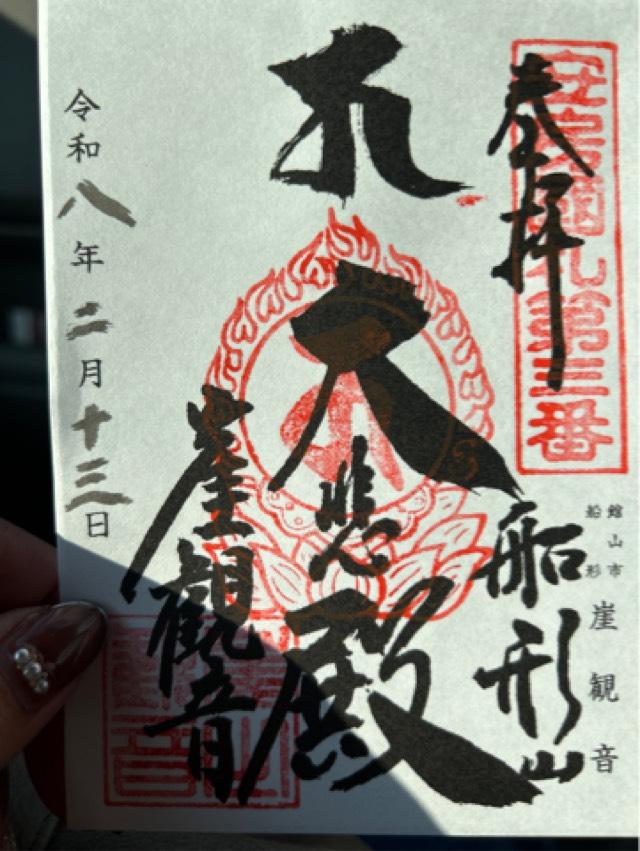 奉拝
安房國札第三番
船形山
館山市
船形
崖観音
大悲殿
崖觀音
令和八年二月十三日